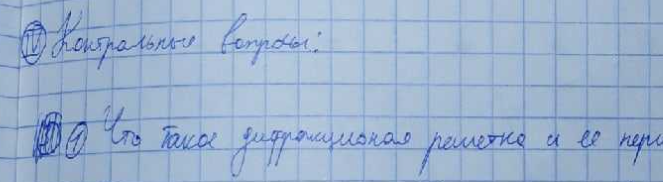 IV Контрольные вопросы:
1 Что такое дифракционая решетка и ее пери